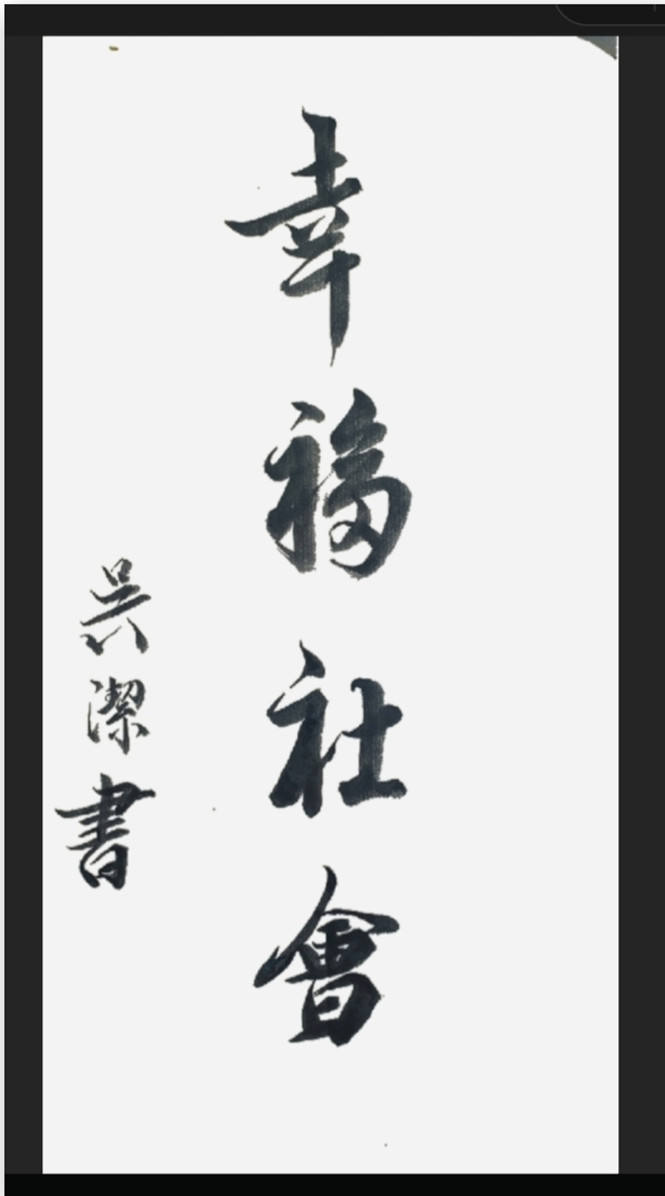 幸福社會
吳潔書